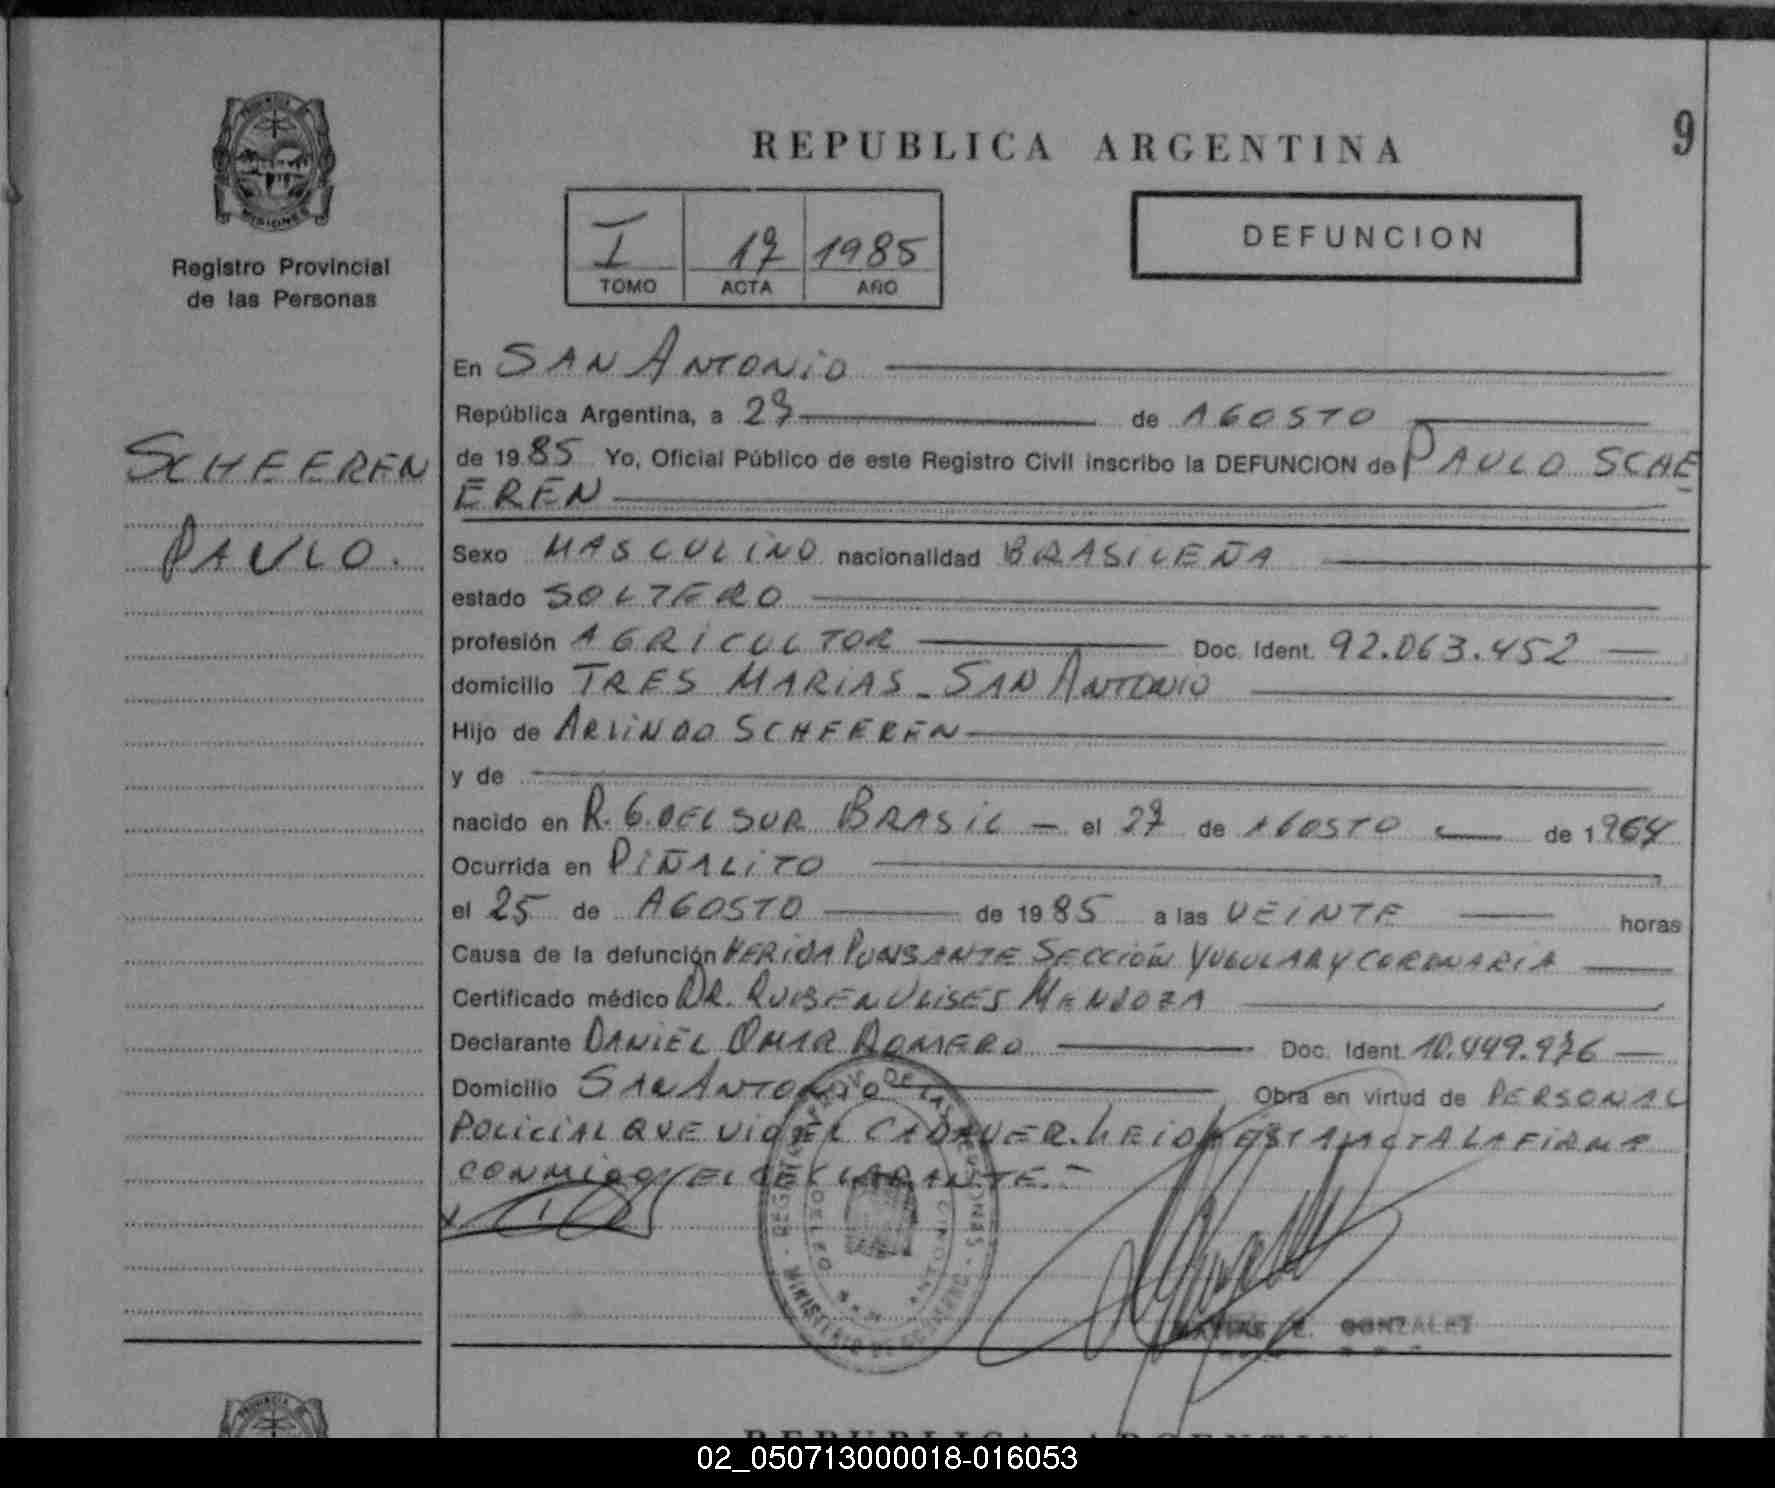 PROVINCIA DE
MISIONES
Registro Provincial
de las Personas
SCHEEREN
PAULO.
9
REPUBLICA ARGENTINA
I 17 1985
TOMO ACTA AÑO
DEFUNCION
En SAN ANTONIO
República Argentina, a 27 de AGOSTO
de 1985 Yo, Oficial Público de este Registro Civil inscribo la DEFUNCION de PAULO SCHE
EREN
Sexo MASCULINO nacionalidad BRASILEÑA
estado SOLTERO
profesión AGRICULTOR Doc. Ident. 92.063.452
domicilio TRES MARIAS - SAN ANTONIO
Hijo de ARLINDO SCHEEREN
y de
nacido en R. G. DEL SUR BRASIL - el 27 de AGOSTO de 1964
Ocurrida en PIÑALITO
el 25 de AGOSTO de 1985 a las VEINTE horas
Causa de la defunción HERIDA PUNSANTE SECCIÓN YUGULAR Y CORONARIA
Certificado médico DR. RUBEN ULISES MENDOZA
Declarante DANIEL OMAR ROMERO Doc. Ident. 10.449.976
Domicilio SAN ANTONIO Obra en virtud de PERSONAL
POLICIAL QUE VIO EL CADAVER. LEIDA ESTA ACTA LA FIRMA
CONMIGO EL DECLARANTE.-
MINISTERIO DE GOBIERNO
GONZALEZ
REPUBLICA ARGENTINA
02_050713000018-016053